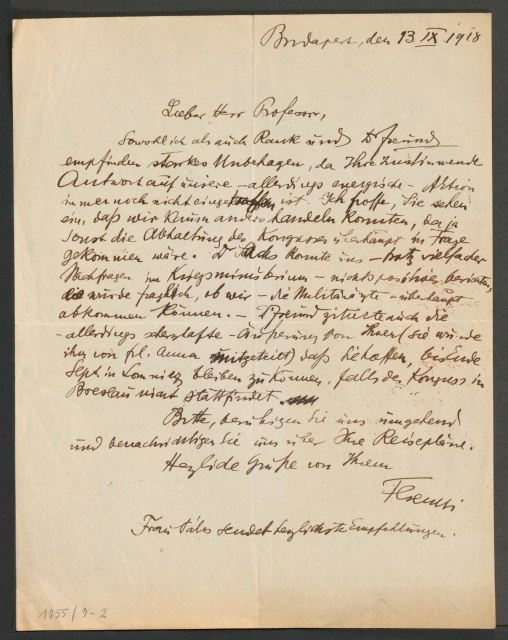 Budapest, den 13. IX 1918
Lieber Herr Professor,
Sowohl ich als auch Rank und Dr Freund
empfinden starkes Unbehagen, da Ihre zustimmende
Antwort auf unsere – allerdings energische – Aktion
immer noch nicht eingetroffen ist. Ich hoffe, Sie sehen
ein, daß wir kaum anders handeln konnten, da ja
sonst die Abhaltung des Kongresses überhaupt in Frage
gekommen wäre. Dr Sachs konnte uns – trotz vielfacher
Nachfragen im Kriegsministerium – nichts positives berichten,
es wurde fraglich, ob wir – die Militärärzte – überhaupt
abkommen können. – Freund zitierte auch die
– allerdings scherzhafte – Äußerung von Ihnen (sie wurde
ihm von Frl. Anna mitgeteilt) daß Sie hoffen, bis Ende
Sept. in Lomnicz bleiben zu können, falls der Kongress in
Breslau nicht stattfindet.
Bitte, beruhigen Sie uns umgehend
und benachrichtigen Sie uns über Ihre Reisepläne.
Herzliche Grüße von Ihrem
Ferenczi
Frau Pálos sendet herzlichste Empfehlungen.
1055/9-2